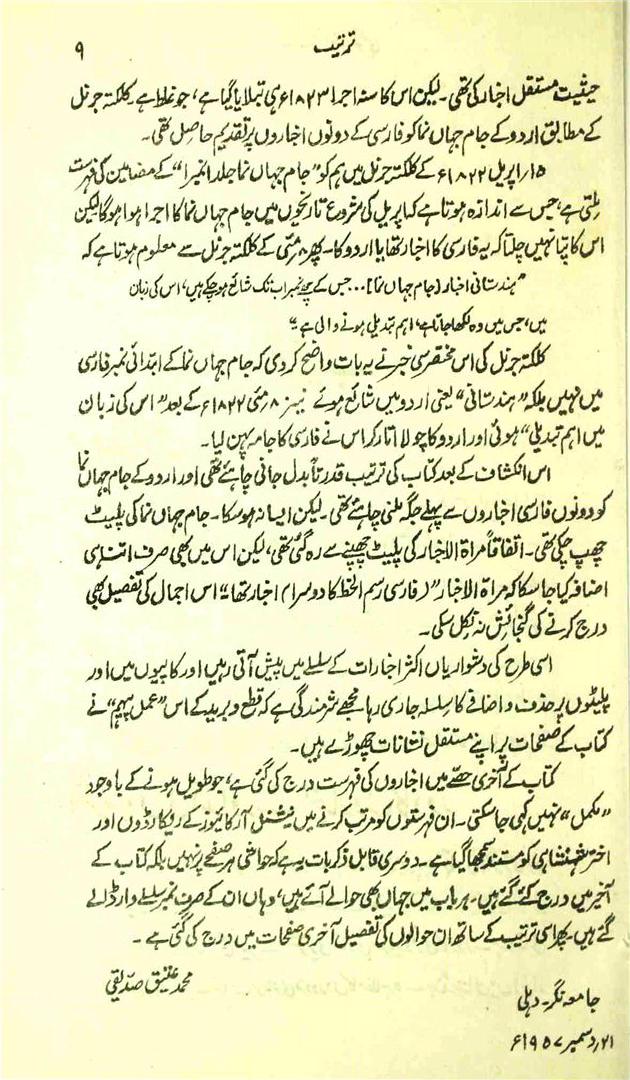 ترتیب ۹
حیثیت مستقل اخبار کی تھی۔ لیکن اس کا سنہ اجرا ۱۸۲۳ء ہی بتلایا گیا ہے، جو غلط ہے۔ کلکتہ جرنل
کے مطابق اردو کے جام جہاں نما کو فارسی کے دونوں اخباروں پر تقدیم حاصل تھی۔
۱۵/ اپریل ۱۸۲۲ء کے کلکتہ جرنل میں ہم کو "جام جہاں نما جلد ا نمبر ا" کے مضامین کی فہرست
ملتی ہے، جس سے اندازہ ہوتا ہے کہ اپریل کی شروع تاریخوں میں جام جہاں نما کا اجرا ہوا ہوگا لیکن
اس کا پتا نہیں چلتا کہ یہ فارسی کا اخبار تھا یا اردو کا۔ پھر ۸ مئی کے کلکتہ جرنل سے معلوم ہوتا ہے کہ
"ہندستانی اخبار [جام جہاں نما]... جس کے چھے نمبر اب تک شائع ہو چکے ہیں، اس کی زبان
میں، جس میں وہ لکھا جاتا ہے، اہم تبدیلی ہونے والی ہے"
کلکتہ جرنل کی اس مختصر سی خبر نے یہ بات واضح کر دی کہ جام جہاں نما کے ابتدائی نمبر فارسی
میں نہیں بلکہ "ہندستانی" یعنی اردو میں شائع ہوئے نیز ۸ مئی ۱۸۲۲ء کے بعد "اس کی زبان
میں اہم تبدیلی" ہوئی اور اردو کا چولا اتار کر اس نے فارسی کا جامہ پہن لیا۔
اس انکشاف کے بعد کتاب کی ترتیب قدرتاً بدل جانی چاہئے تھی اور اردو کے جام جہاں نما
کو دونوں فارسی اخباروں سے پہلے جگہ ملنی چاہئے تھی۔ لیکن ایسا نہ ہو سکا۔ جام جہاں نما کی پلیٹ
چھپ چکی تھی۔ اتفاقاً مراۃ الاخبار کی پلیٹ چھپنے سے رہ گئی تھی، لیکن اس میں بھی صرف اتنا ہی
اضافہ کیا جا سکا کہ مراۃ الاخبار "(فارسی رسم الخط کا دوسرا) اخبار تھا" اس اجمال کی تفصیل بھی
درج کرنے کی گنجائش نہ نکل سکی۔
اسی طرح کی دشواریاں اکثر اخبارات کے سلسلے میں پیش آتی رہیں اور کاپیوں میں اور
پلیٹوں پر حذف و اضافے کا سلسلہ جاری رہا مجھے شرمندگی ہے کہ قطع و برید کے اس "عمل پیہم" نے
کتاب کے صفحات پر اپنے مستقل نشانات چھوڑے ہیں۔
کتاب کے آخری حصے میں اخباروں کی فہرست درج کی گئی ہے، جو طویل ہونے کے باوجود
"مکمل" نہیں کہی جا سکتی۔ ان فہرستوں کو مرتب کرنے میں نیشنل آرکائیوز کے ریکارڈوں اور
اختر شہنشاہی کو مستند سمجھا گیا ہے۔ دوسری قابل ذکر بات یہ ہے کہ حواشی ہر صفحے پر نہیں بلکہ کتاب کے
آخر میں درج کئے گئے ہیں۔ ہر باب میں جہاں بھی حوالے آئے ہیں، وہاں ان کے صرف نمبر سلسلے وار ڈالے
گئے ہیں۔ پھر اسی ترتیب کے ساتھ ان حوالوں کی تفصیل آخری صفحات میں درج کی گئی ہے۔
محمد عتیق صدیقی
جامعہ نگر۔ دہلی
۲۱/ دسمبر ۱۹۵۷ء